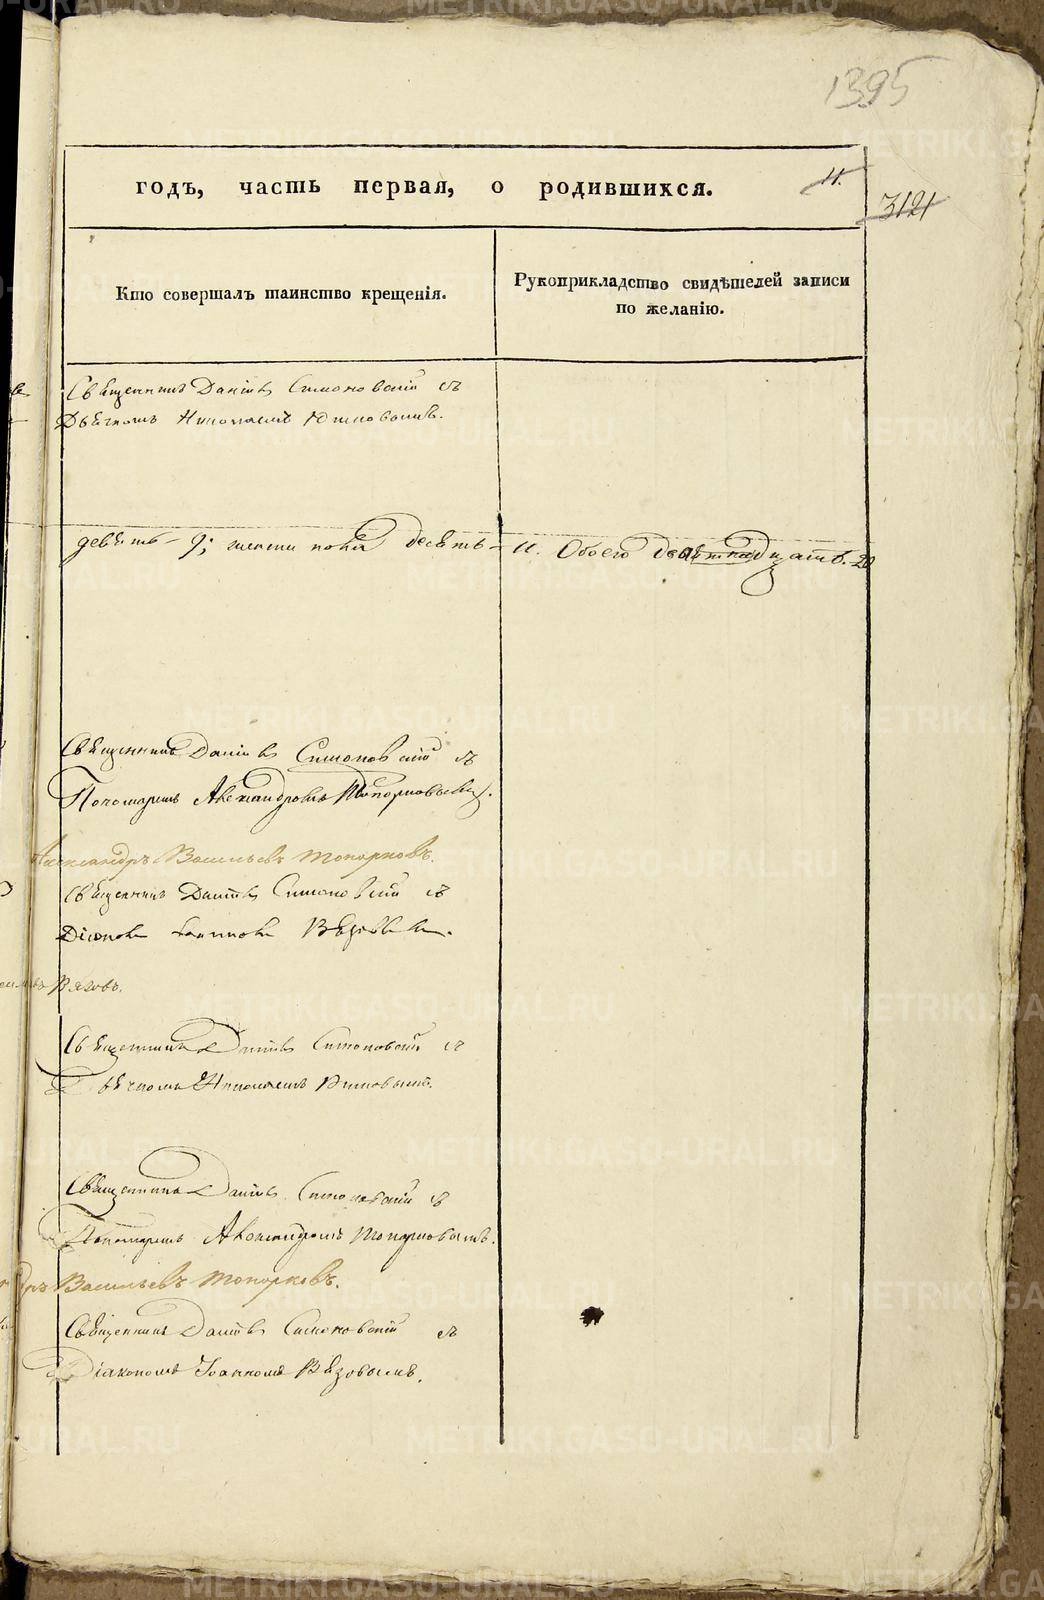 1395
годъ, часть первая, о родившихся.
11.
3121
Кто совершалъ таинство крещенія.
Рукоприкладство свидѣтелей записи
по желанію.
Священникъ Даніилъ Симоновскій съ
Дьячкомъ Николаемъ
девять - 9; женска пола десять - 11. Обоего двадцать. 20
Священникъ Даніилъ Симоновскій съ
Пономаремъ Александромъ Топорковымъ.
Александръ Васильевъ Топорковъ.
Священникъ Даніилъ Симоновскій съ
Діакономъ Іоанномъ Вязовымъ.
Вязовъ.
Священникъ Даніилъ Симоновскій съ
Дьячкомъ Николаемъ
Священникъ Даніилъ Симоновскій съ
Пономаремъ Александромъ Топорковымъ.
Васильевъ Топорковъ.
Священникъ Даніилъ Симоновскій съ
Діакономъ Іоанномъ Вязовымъ.
METRIKI.GASO-URAL.RU